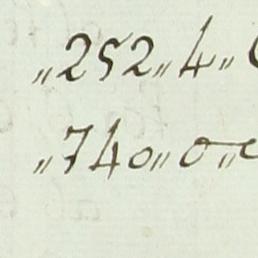 „252„4„
„740„0„